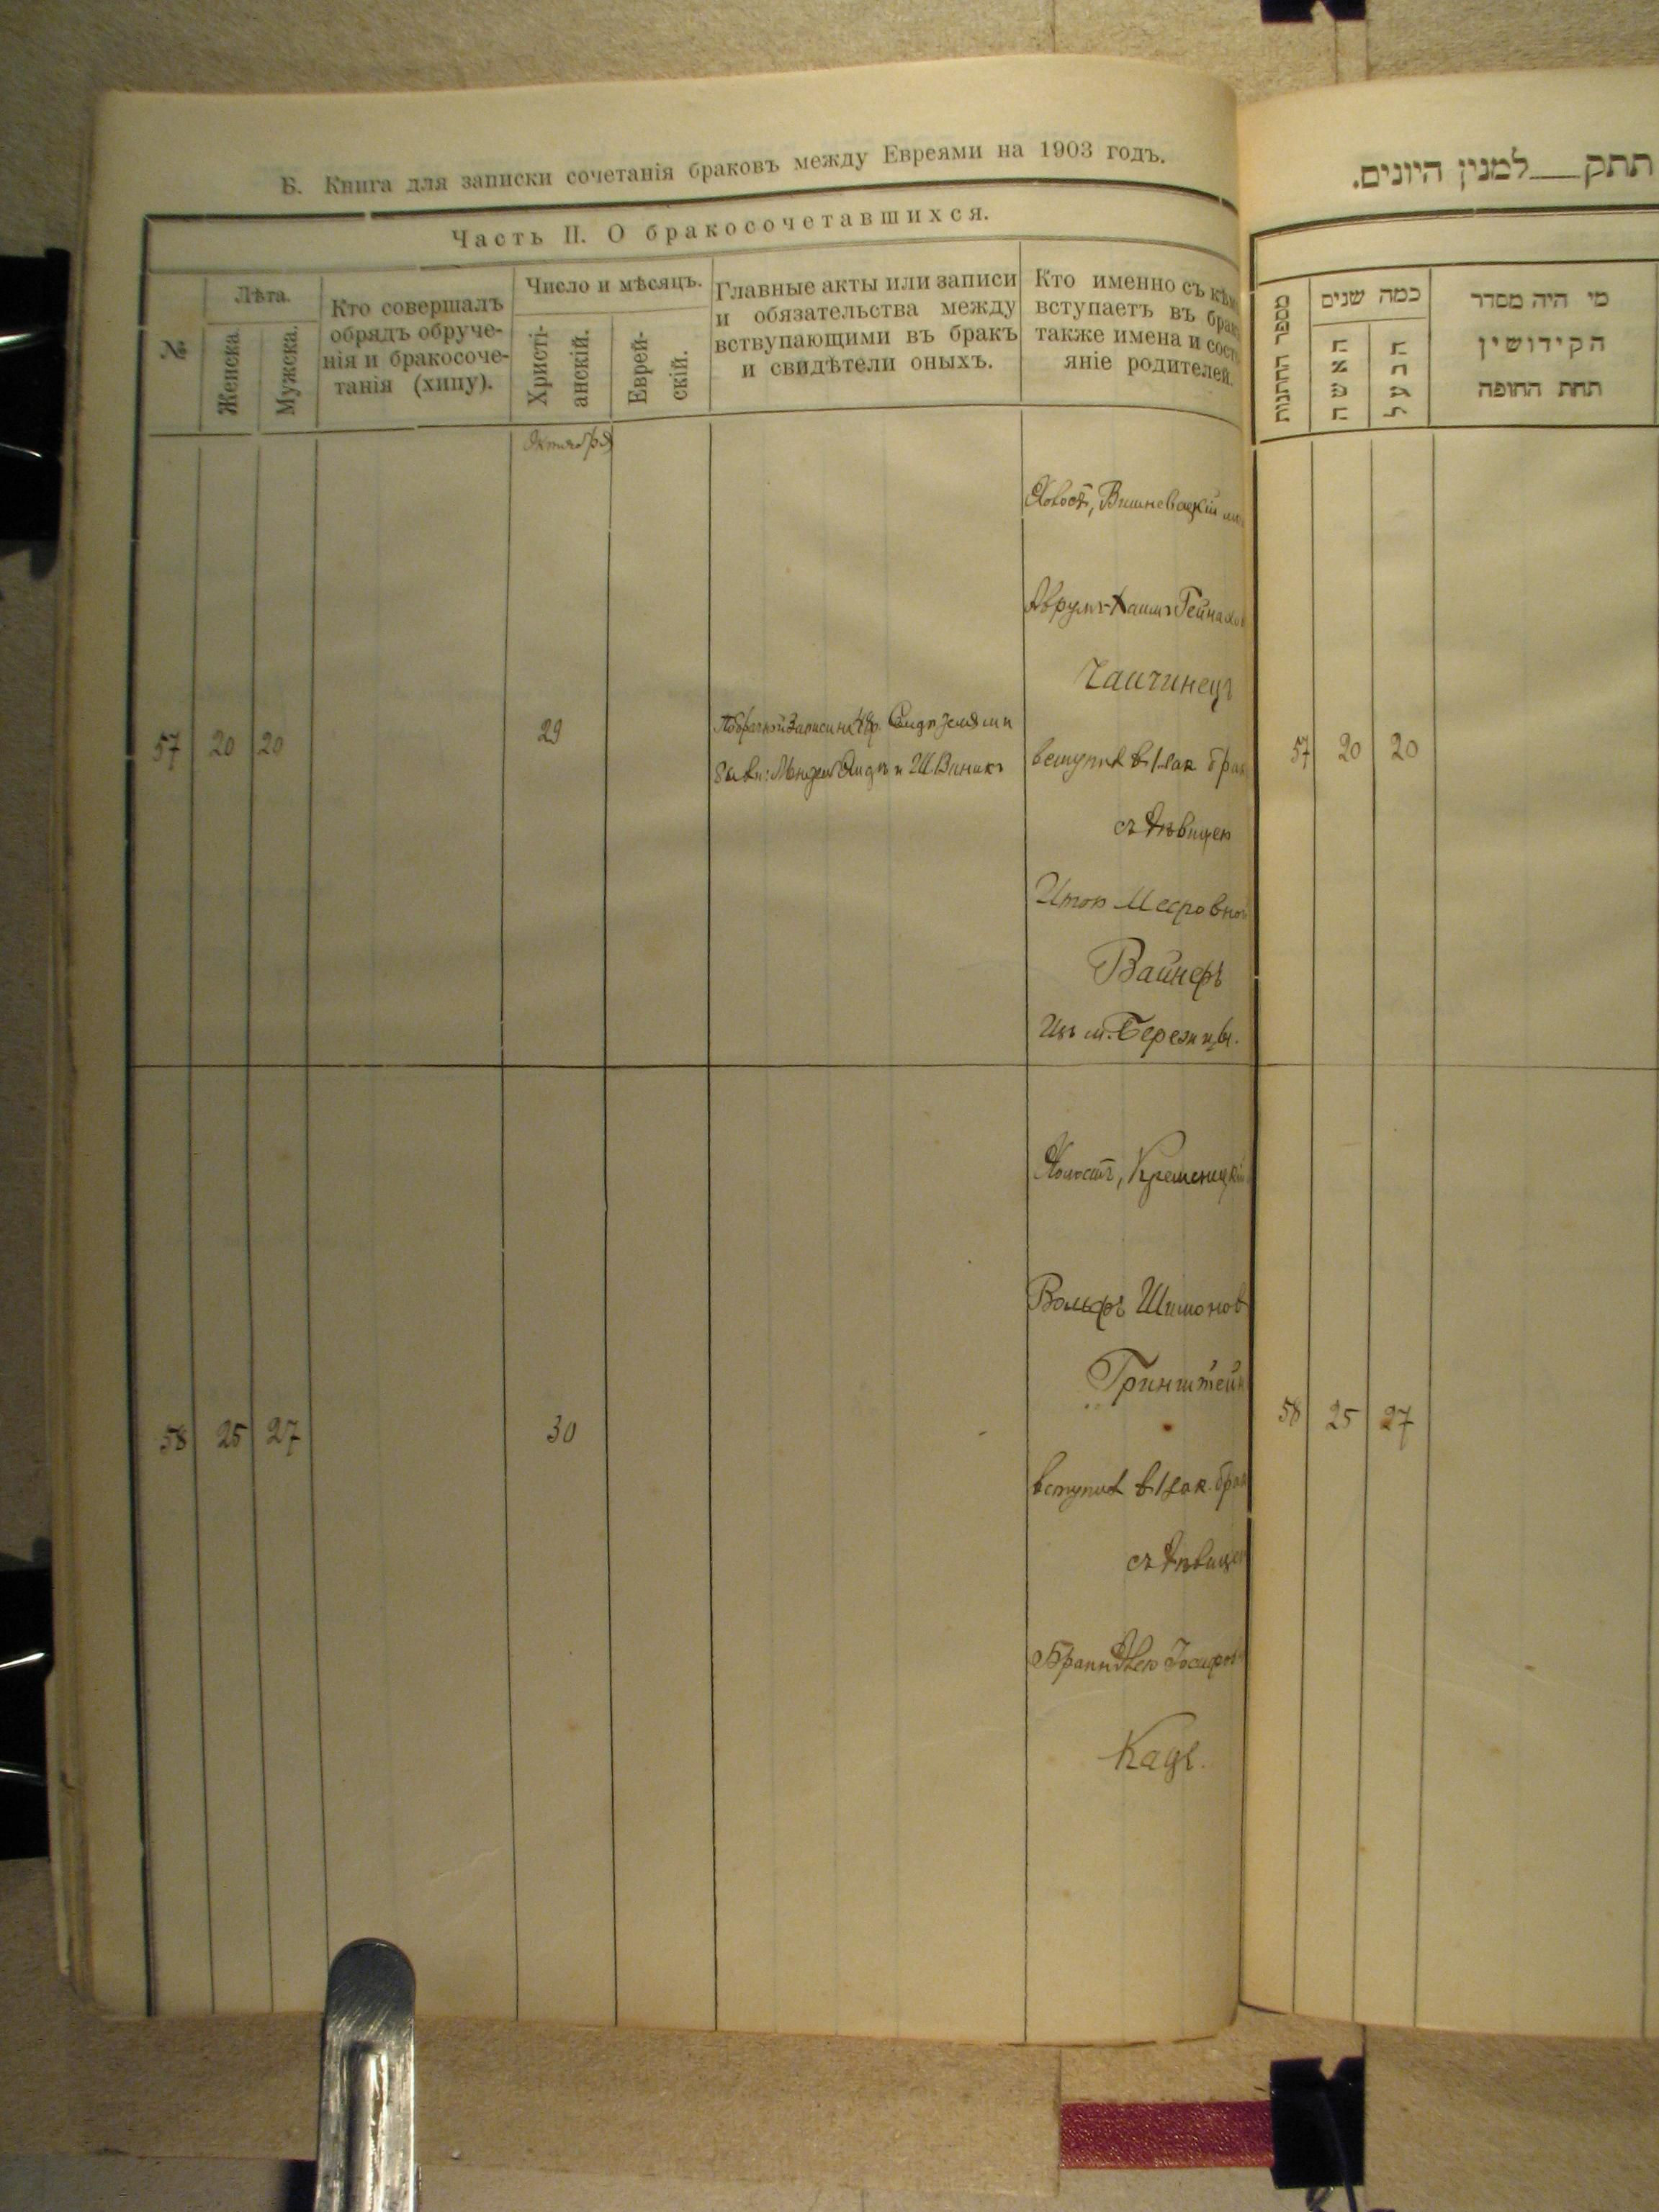 Б. Книга для записки сочетанія браковъ между Евреями на 1903 годъ.
Часть II. О бракосочетавшихся.
№
Лѣта.
Женска
Мужска.
Кто совершалъ
обрядъ обруче-
нія и бракосоче-
танія (хипу).
Число и мѣсяцъ.
Христі-
анскій.
Еврей-
скій.
Главные акты или записи
и обязательства между
вствупающими въ бракъ
и свидѣтели оныхъ.
Кто именно съ кѣмъ
вступаетъ въ бракъ
также имена и сост
яніе родителей.
Октября
57
20
20
29
Холост, Вишневецкій
Аврумъ-Хаимъ
Чаичинецъ
вступил в 1 зак. брак
съ дѣвицею
Вайнеръ
Изъ м. Бережцы.
58
25
27
30
Холостъ, Кременецкій
Вольфъ Шимонов
Гринштейн
вступил в 1 зак. брак
съ дѣвицею
Кацъ.
תתק למנין היונים.
מספר החתנות
כמה שנים
האשה
הבעל
מי היה מסדר
הקידושין
תחת החופה
57
20
20
58
25
27